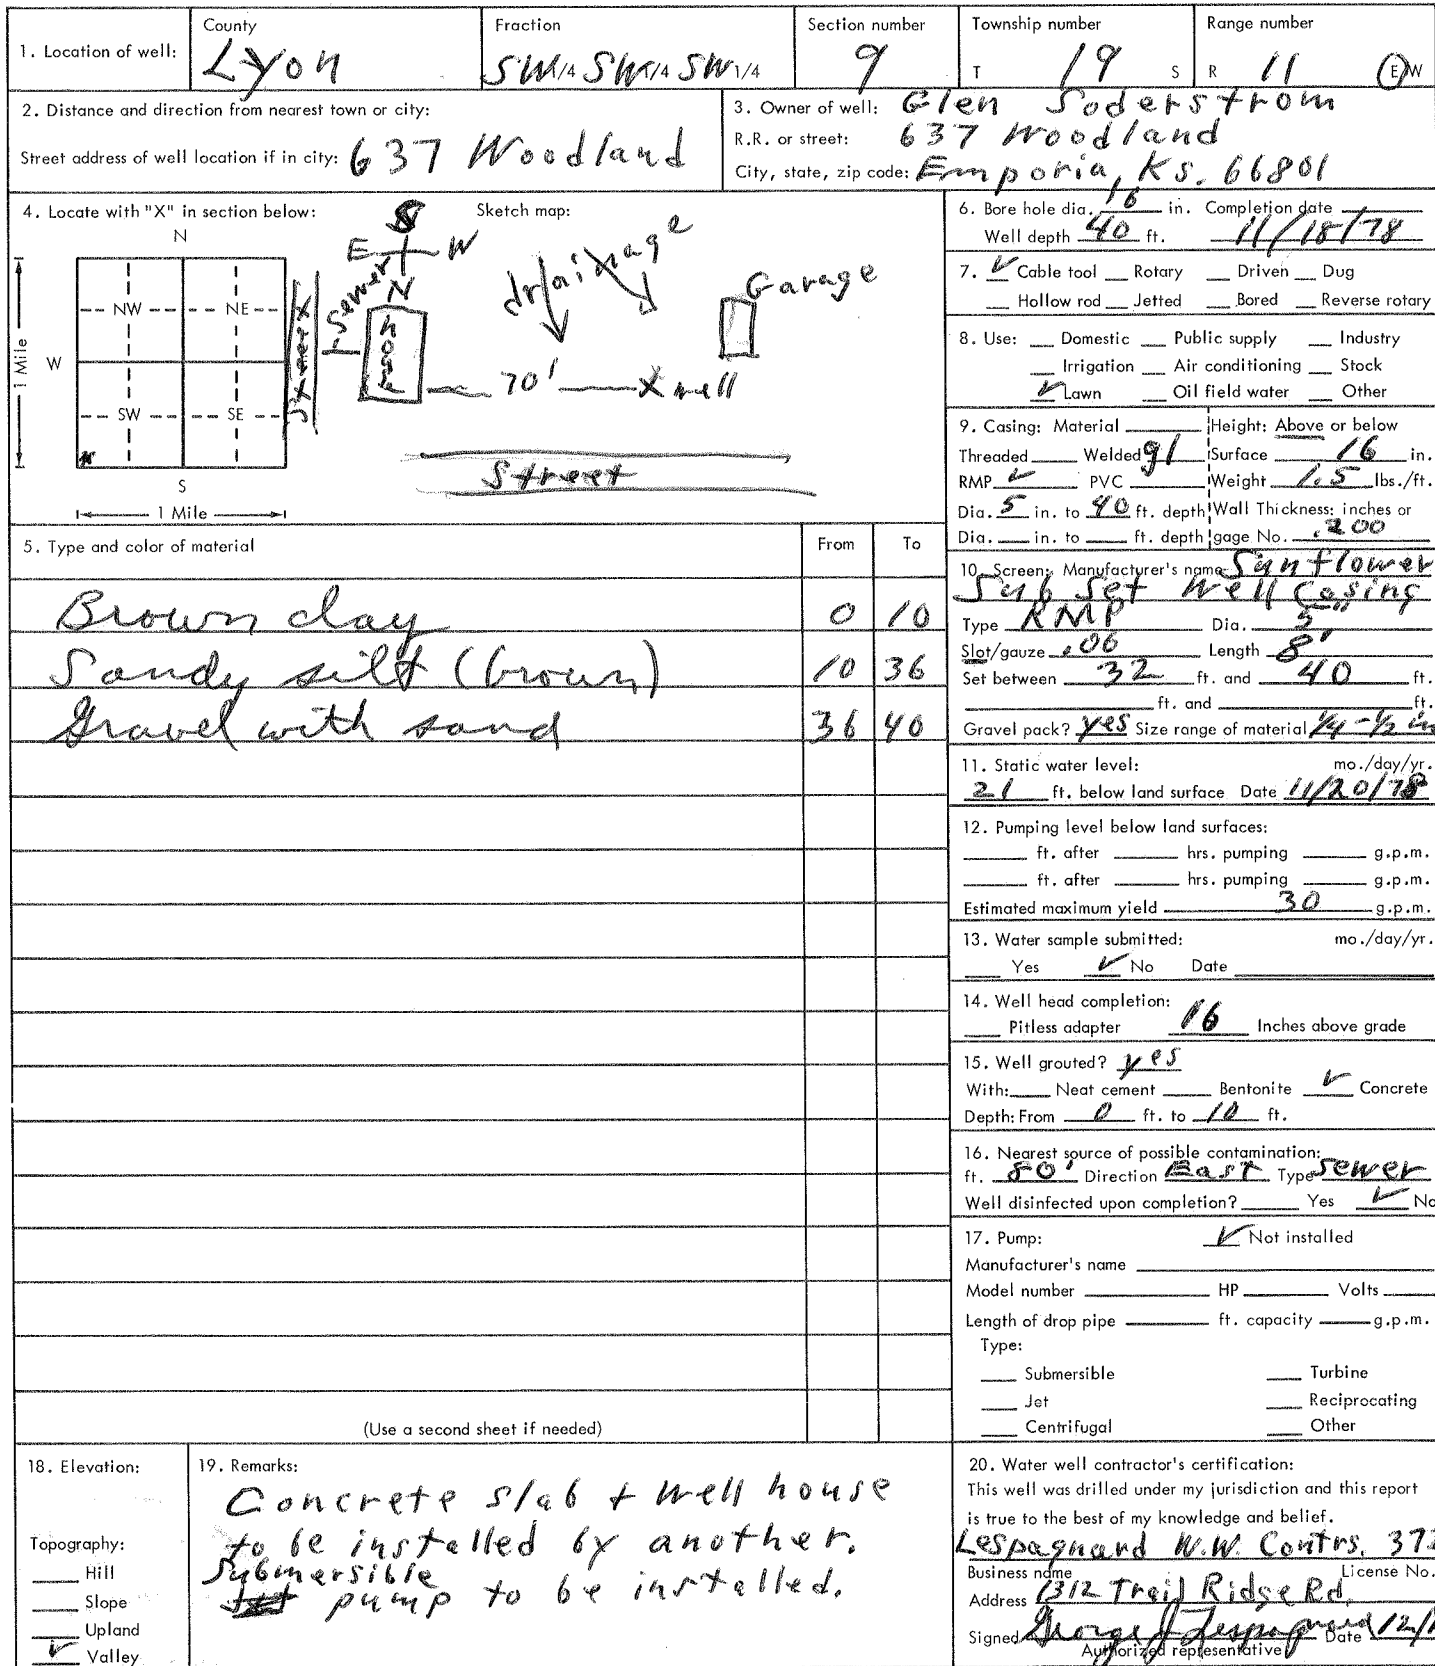 1. Location of well:
County
Lyon
Fraction
SW 1/4 SW 1/4 SW 1/4
Section number
9
Township number
T 19 S
Range number
R 11 E W
2. Distance and direction from nearest town or city:
Street address of well location if in city: 637 Woodland
3. Owner of well: Glen Soderstrom
R.R. or street: 637 Woodland
City, state, zip code: Emporia, Ks. 66801
4. Locate with "X" in section below:
N
NW NE
W
SW SE
S
1 Mile
1 Mile
Sketch map:
S
E W
N
Street
Sewer
house
drainage
Garage
70' X well
Street
5. Type and color of material From To
Brown clay 0 10
Sandy silt (brown) 10 36
Gravel with sand 36 40
(Use a second sheet if needed)
6. Bore hole dia. 16 in. Completion date
Well depth 40 ft. 11/18/78
7. ✓ Cable tool Rotary Driven Dug
Hollow rod Jetted Bored Reverse rotary
8. Use: Domestic Public supply Industry
Irrigation Air conditioning Stock
✓ Lawn Oil field water Other
9. Casing: Material Height: Above or below
Threaded Welded gl Surface 16 in.
RMP ✓ PVC Weight 1.5 lbs./ft.
Dia. 5 in. to 40 ft. depth Wall Thickness: inches or
Dia. in. to ft. depth gage No. .200
10. Screen: Manufacturer's name Sunflower
Sub Set Well Casing
Type RMP Dia. 5"
Slot/gauze .06 Length 8'
Set between 32 ft. and 40 ft.
ft. and ft.
Gravel pack? yes Size range of material 1/4 - 1/2 in
11. Static water level: mo./day/yr.
21 ft. below land surface Date 11/20/78
12. Pumping level below land surfaces:
ft. after hrs. pumping g.p.m.
ft. after hrs. pumping g.p.m.
Estimated maximum yield 30 g.p.m.
13. Water sample submitted: mo./day/yr.
Yes ✓ No Date
14. Well head completion:
Pitless adapter 16 Inches above grade
15. Well grouted? yes
With: Neat cement Bentonite ✓ Concrete
Depth: From 0 ft. to 10 ft.
16. Nearest source of possible contamination:
ft. 80' Direction East Type Sewer
Well disinfected upon completion? Yes ✓ No
17. Pump: ✓ Not installed
Manufacturer's name
Model number HP Volts
Length of drop pipe ft. capacity g.p.m.
Type:
Submersible Turbine
Jet Reciprocating
Centrifugal Other
18. Elevation:
Topography:
Hill
Slope
Upland
✓ Valley
19. Remarks:
Concrete slab + well house
to be installed by another.
Submersible
pump to be installed.
20. Water well contractor's certification:
This well was drilled under my jurisdiction and this report
is true to the best of my knowledge and belief.
Lespagnard W.W. Contrs. 372
Business name License No.
Address 1312 Trail Ridge Rd.
Signed George J Lespagnard Date 12/1
Authorized representative